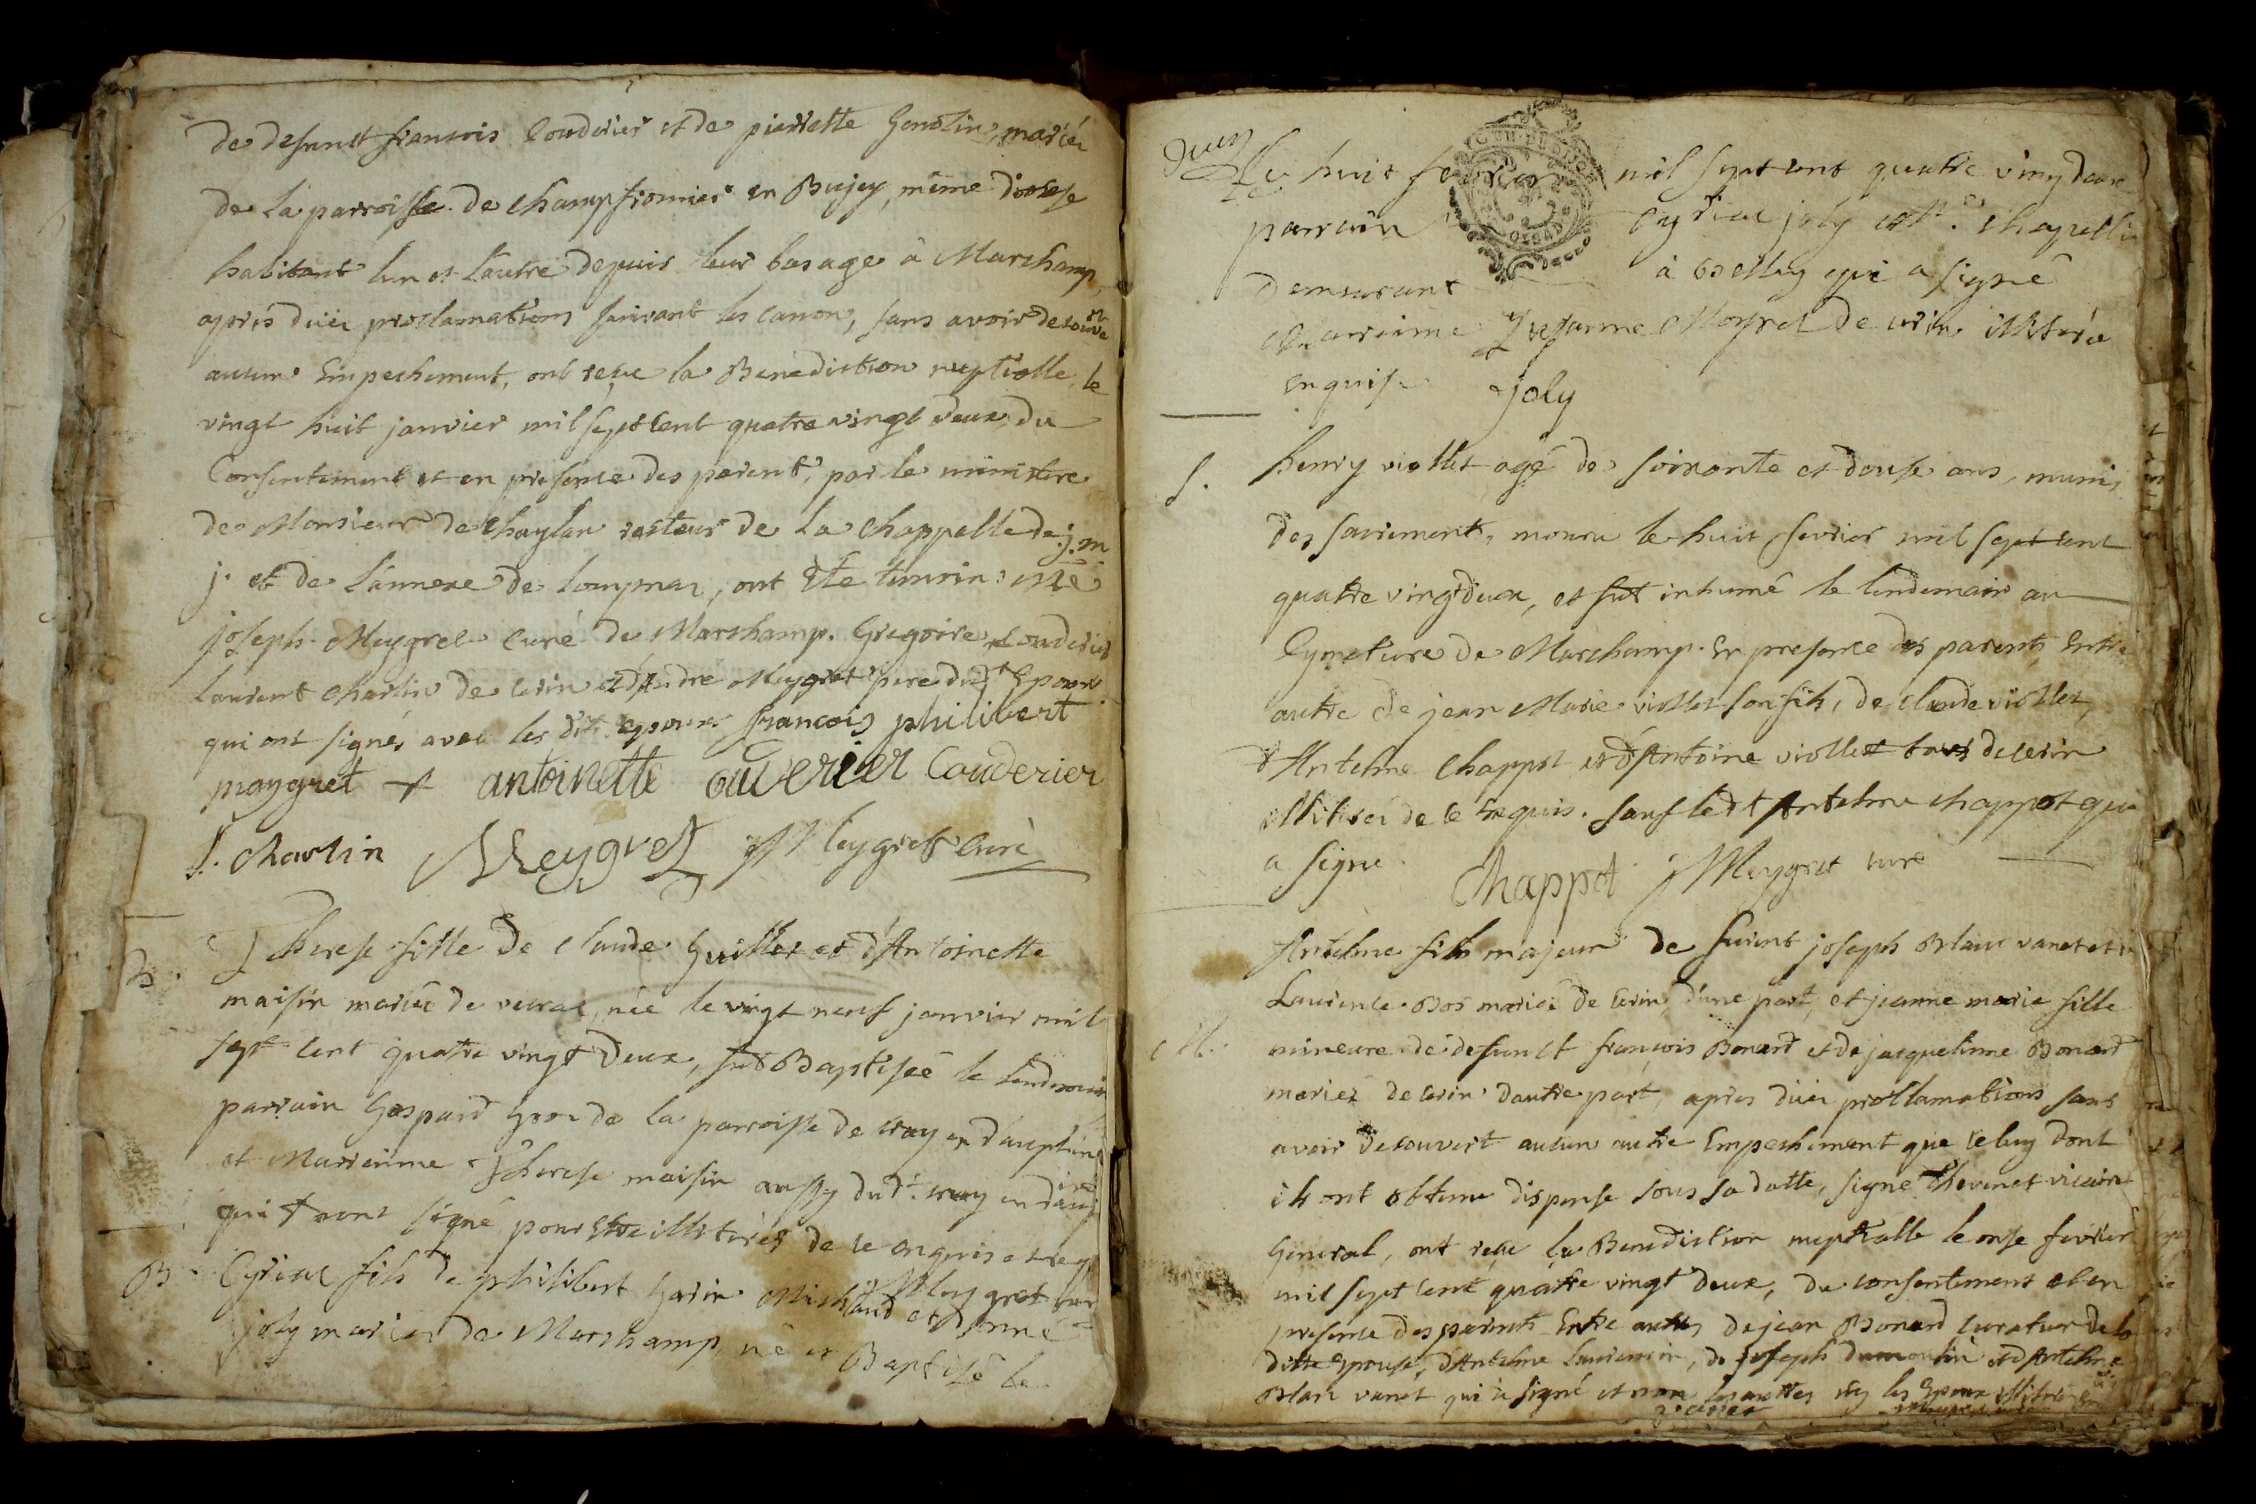 de defunct francois Couderier et de pierrette Genolin, mariéz
de la parroisse de Champfromier en Bujey, même diocese
habitant lun et lautre depuis leur bas age à Marchamp,
après duëe proclamations suivant les canon, sans avoir decouvert
aucun Empechement, ont reçue la Benediction nuptialle, le
vingt huit janvier mil sept cent quatre vingt deux, du
Consentement et en presence des parent, par le ministere
de Monsieur de Chaylan recteur de la Chappelle de j. m
j. et de l'annexe de Lompnaz, ont Été temoin: Mre
joseph Meygret Curé de Marchamp. Gregoire Couderier
Laurent Charlin de Cerin et d'André Meygret pere du dt Epoux
qui ont signés avec les dits epoux francois philibert
maygret + antoinette couderier Couderier
L. Charlin Meygret Meygret Curé
B. Therese fille de Claude Guillet et d'Antoinette
maisin mariéz de verai, née le vingt neuf janvier mil
sept cent quatre vingt Deux, fut Baptisée le lendemain
parrain Gaspard de la parroisse de cray en dauphiné
et Marrainne Therese maisin aussy dudt. cray en dauphiné
qui n'ont signé pour être illitérés de ce enquis et requis
Meygret curé
B. Cyriac fils de philibert Garin Michaud et d'Anne
joly mariez de Marchamp né et Baptisé le
Deux
Le huit fevrier mil sept cent quatre vingt deux
parrain Cyriac joly chapellier
Demeurant à Belley qui a signé
Marraine Suzanne Meygret de cerin illitérée
enquise joly
S. henry viollet agé de soixante et douse ans, munis
des sacrements, mouru le huit fevrier mil sept cent
quatre vingt deux, et fut inhumé le lendemain au
Cymetiere de Marchamp. En presence des parents Entre
autre de jean Marie viollet son fils, de Claude viollet,
d'Antelme Chappot et d'Antoine viollet tous de cerin
illiterés de ce Enquis. sauf le dt Antelme Chappot qui
a signé. Chappot Meygret curé
Antelme fils majeur de furent joseph Blanc vanet et de
Laurence Bos mariéz de Cerin, d'une part, et jeanne marie fille
M. mineure de defunct francois Bonard et de jacquelinne Bonard
mariez de cerin d'autre part, apres duëe proclamations sans
avoir decouvert aucun autre Empechement que celuy dont
ils ont obtenu dispense sous sa datte, signé Thevenet vicaire
General, ont reçue la Benediction nuptialle le onse fevrier
mil sept cent quatre vingt deux, du consentement et en
presence des parents Entre autres de jean Bonard curateur de la
ditte Epouse, d'Antelme Laurencin, de joseph dumoulin et d'Antelme
Blanc vanet qui a signé et non les autres ny les Epoux illitérés